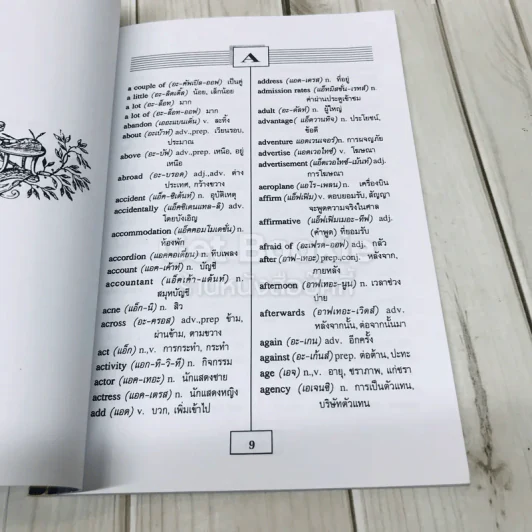 A
a couple of (อะ-คัพเบิล-ออฟ) เป็นคู่
a little (อะ-ลิตเติ้ล) น้อย, เล็กน้อย
a lot (อะ-ล็อท) มาก
a lot of (อะ-ล็อท-ออฟ) มาก
abandon (เออะแบนเดิน) v. ละทิ้ง
about (อะเบ๊าท์) adv.,prep. เวียนรอบ,
ประมาณ
above (อะ-บัฟ) adv.,prep. เหนือ, อยู่
เหนือ
abroad (อะ-บรอด) adj.,adv. ต่าง
ประเทศ, กว้างขวาง
accident (แอ็คซิเด้นท์) n. อุบัติเหตุ
accidentally (แอ็คซิเดนแทล-ลิ) adv.
โดยบังเอิญ
accommodation (แอ็คคอมโมเดชั่น) n.
ห้องพัก
accordion (แอคคอเดียน) n. หีบเพลง
account (แอค-เค้าท์) n. บัญชี
accountant (แอ็คเค้า-แต้นท์) n.
สมุหบัญชี
acne (แอ็ก-นี) n. สิว
across (อะ-ครอส) adv.,prep ข้าม,
ผ่านข้าม, ตามขวาง
act (แอ็ก) n.,v. การกระทำ, กระทำ
activity (แอก-ทิ-วิ-ที) n. กิจกรรม
actor (แอค-เทอะ) n. นักแสดงชาย
actress (แอค-เตรส) n. นักแสดงหญิง
add (แอด) v. บวก, เพิ่มเข้าไป
address (แอด-เดรส) n. ที่อยู่
admission rates (แอ็ทมิสชั่น-เรทส์) n.
ค่าผ่านประตูเข้าชม
adult (อะ-ดัลท์) n. ผู้ใหญ่
advantage (แอ็ดวานทิจ) n. ประโยชน์,
ข้อดี
adventure แอดเวนเจอร์)n. การผจญภัย
advertise (แอดเวอไทซ์) v. โฆษณา
advertisement (แอ็ดเวอไทซ์-เม้นท์) adj.
การโฆษณา
aeroplane (แอโร-เพลน) n. เครื่องบิน
affirm (แอ็ฟเฟิม) v. ตอบยอมรับ, สัญญา
จะพูดความจริงในศาล
affirmative (แอ็ฟเฟิมเมอะ-ทีฟ) adj.
(คำพูด) ที่ยอมรับ
afraid of (อะเฟรด-ออฟ) adj. กลัว
after (อาฟ-เทอะ) prep.,conj. หลังจาก,
ภายหลัง
afternoon (อาฟเทอะ-นูน) n. เวลาช่วง
บ่าย
afterwards (อาฟเทอะ-เวิดส์) adv.
หลังจากนั้น, ต่อจากนั้นมา
again (อะ-เกน) adv. อีกครั้ง
against (อะ-เก้นส์) prep. ต่อต้าน, ปะทะ
age (เอจ) n.,v. อายุ, ชราภาพ, แก่ชรา
agency (เอเจนซี) n. การเป็นตัวแทน,
บริษัทตัวแทน
9